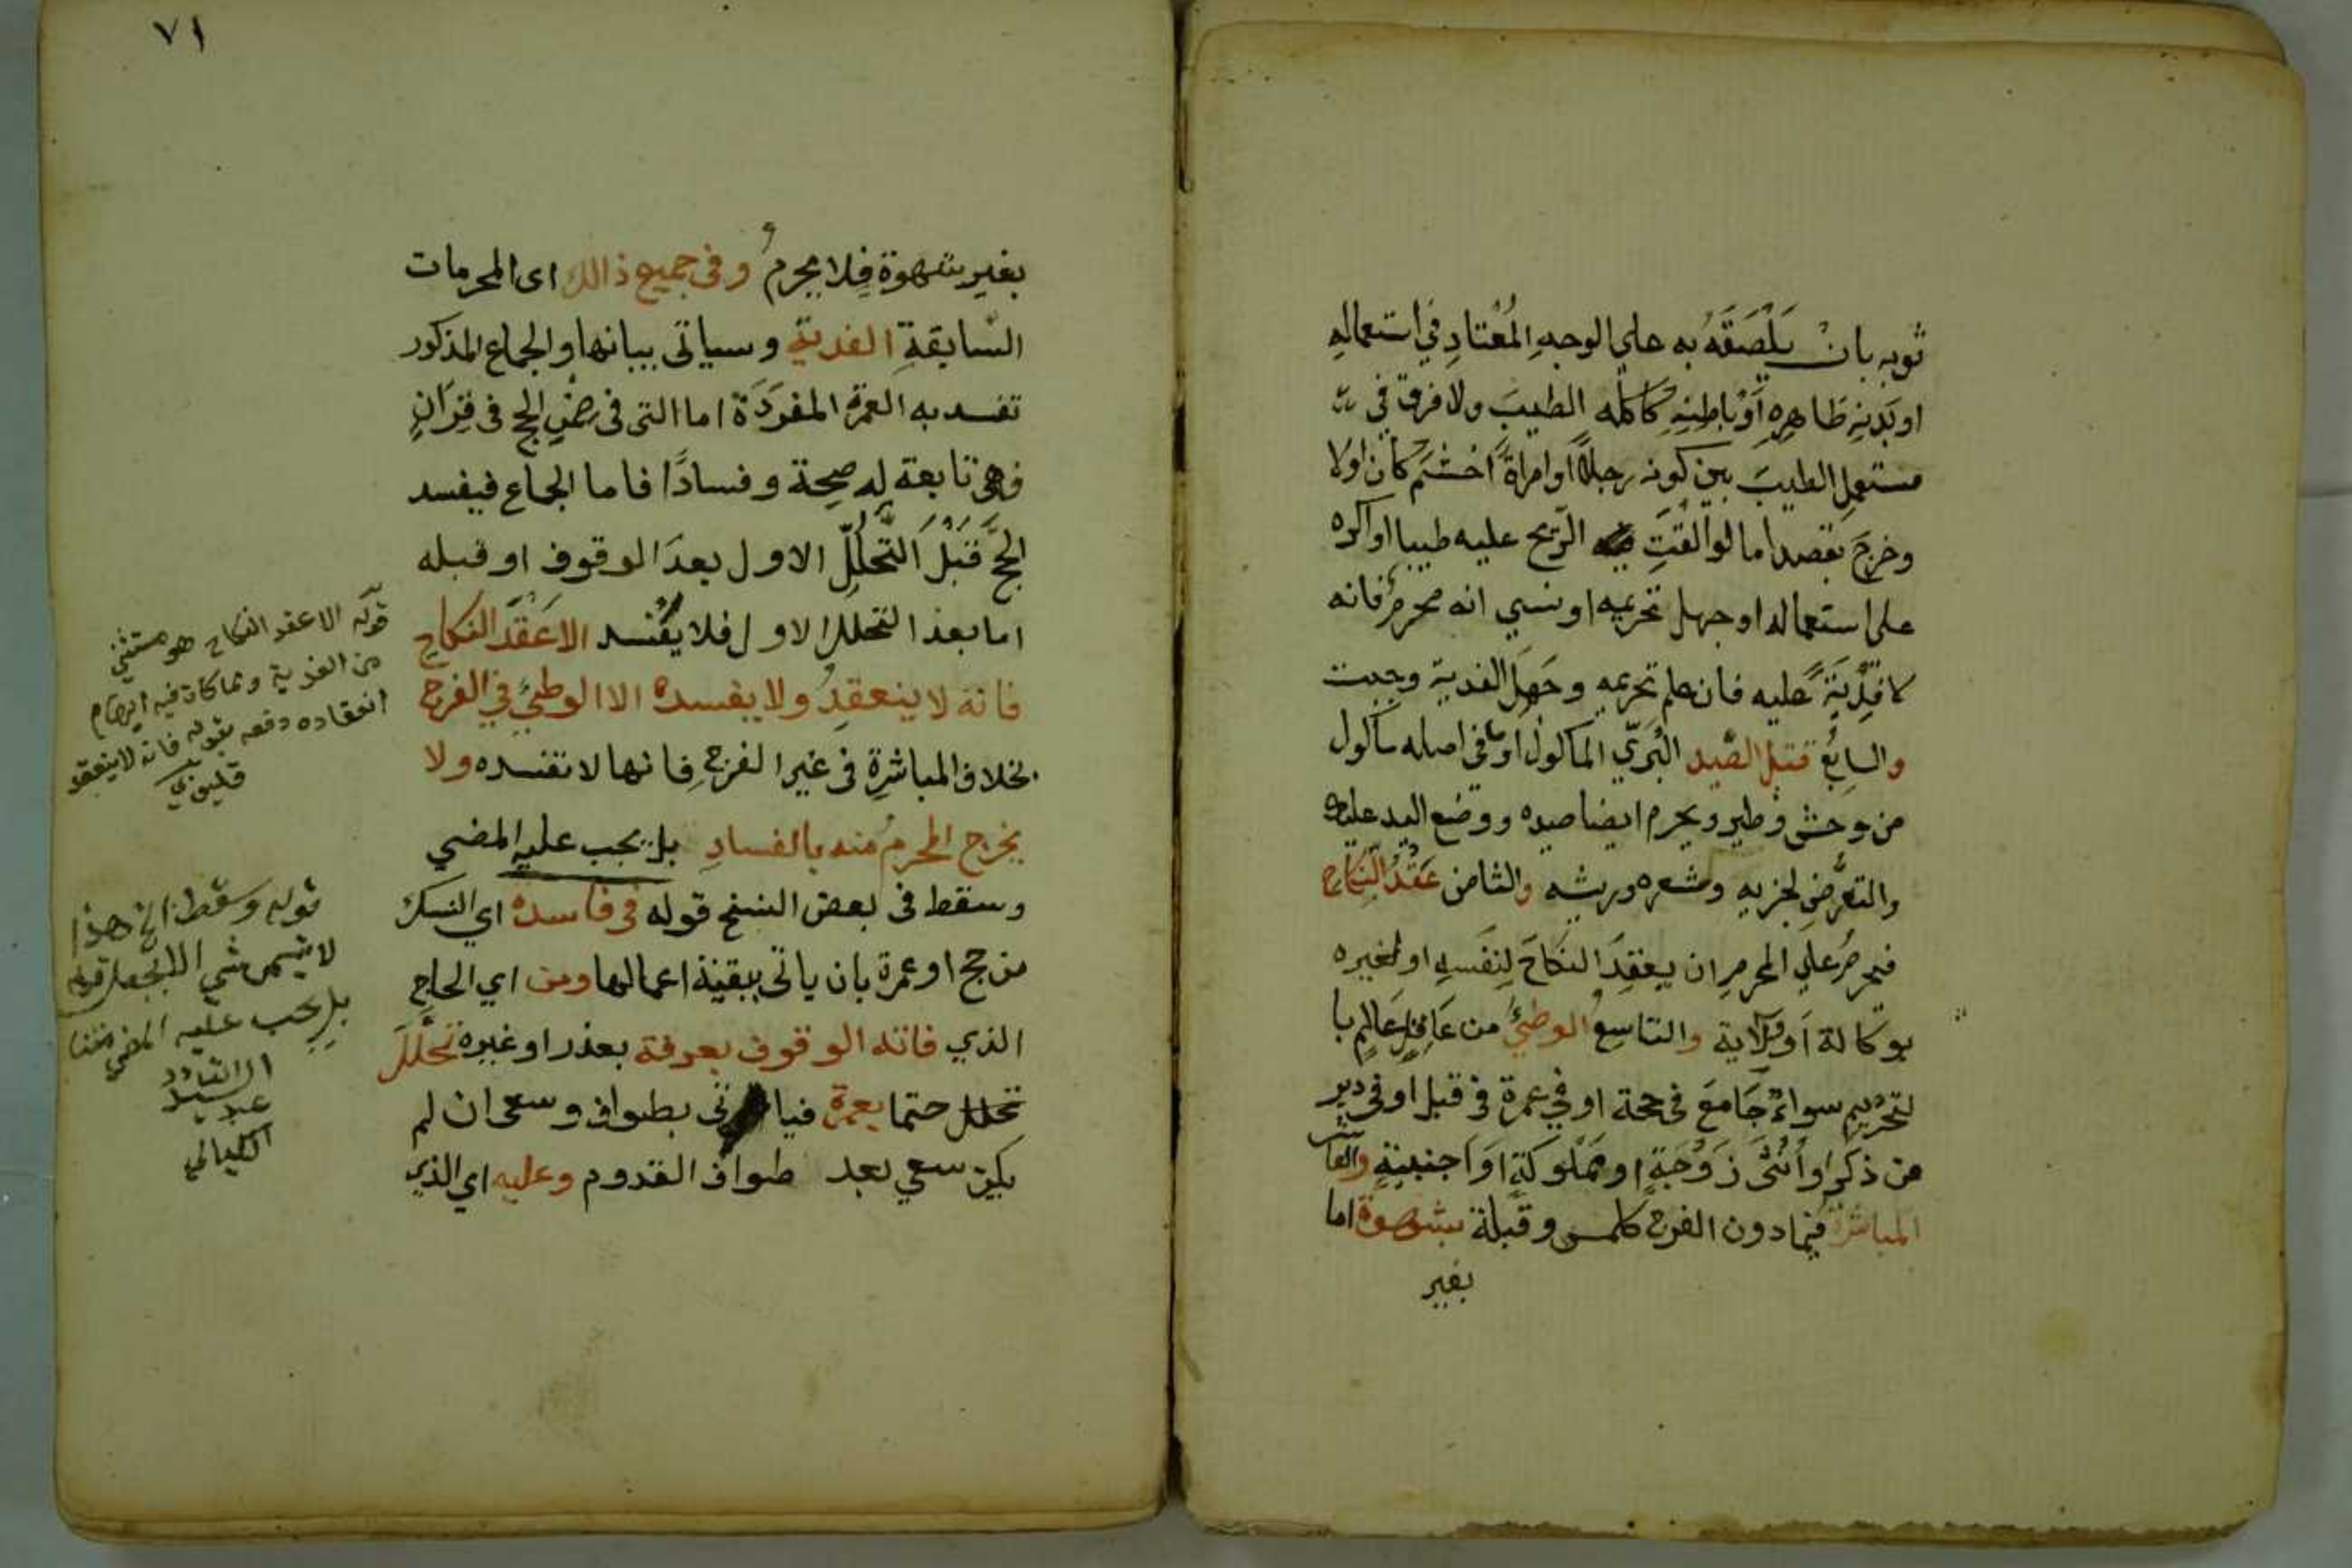 ثوبه بان يَلْصَقَهُ به علي الوجهِ المُعْتادِ في استعمالهِ
او بَدنِهِ ظاهِرِهِ اَوْ باطِنِهِ كاكله الطيبَ ولا فرق في
مستعمِل الطيبَ بين كونه رجلاً او امراةً اخشم كان اولا
وخرجَ بقصد اما لو القتِ الرّيح عليه طيبا او اكره
على استعماله او جهل تحريمه او نسي انه محرمٌ فانه
لا فِدْيَةً عليه فان علم تحريمه وجَهِلَ الفدية وجبت
والسابع قتل الصّيد البَرّي الماكول او ما في اصله ماكول
من وحش وطير ويحرم ايضا صيده ووضع اليد عليه
والتعرُّضِ لجزيه وشعره وريشه والثامن عَقْدُ النِكاح
فيحرمُ علي المحرمِ ان يعقِدَ النكاحَ لِنَفسِهِ او لغيره
بوكالة اَو وِلَاية والتاسع الوطئُ من عَاقِلٍ عَالِمٍ با
لتحريمِ سواءٌ جَامَعَ في حجة او في عمرة في قبل او في دبر
من ذكر او اُنْثَى زَوْجَةٍ او مَمْلوكَةٍ اوَ اجنبيةٍ والعاشر
المباشرة فيما دون الفرج كلمس وقُبلة بشهوة اما
بغير
٧١
بغير شهوة فلا يحرمُ وفى جميع ذالك اى المحرمات
السّابقةِ الفدية وسياتى بيانها والجماع المذكور
تفسد به العمرة المفردَة اما التى فى ضمن الحج فى قِرَانٍ
فهى تابعة له صحة وفسادًا فاما الجماع فيفسد
الحَجَّ قَبْلَ التَّحَلُّلِ الاول بعدَ الوقوف او قبله
اما بعد التحلل الاول فلا يفسد الا عَقْدَ النكاحِ
فانه لا ينعقدُ ولا يفسده الا الوطئُ في الفرج
بخلاف المباشرة فى غير الفرجِ فانها لا تفسده ولا
يخرج المحرمُ منه بالفسادِ بل يجب عليه المضي
وسقط فى بعض النسخ قوله فى فاسده اي النسك
من حج او عمرة بان ياتى ببقية اعمالها ومن اي الحاج
الذي فاته الوقوف بعرفة بعذر او غيره تحلَّلَ
تحلل حتما بعمرة فياتى بطواف وسعى ان لم
يكن سعي بعد طواف القدوم وعليه اي الذي
قوله الا عقد النكاح هو مستثنى
من الفدية ولما كان فيه ايهام
انعقاده دفعه بقوله فانه لا ينعقد
قليوبي
قوله وسقط الخ هذا
بل يجب عليه المضي